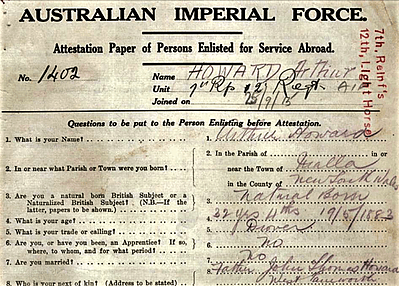 AUSTRALIAN IMPERIAL FORCE.
Attestation Paper of Persons Enlisted for Service Abroad.
7th Reinf's
12th Light Horse
No. 1402
Name HOWARD Arthur
Unit Regt AIF
Joined on 9/15
Questions to be put to the Person Enlisting before Attestation.
1. What is your Name?
1. Arthur Howard
2. In or near what Parish or Town were you born?
2. In the Parish of in or
near the Town of
in the County of New South Wales
3. Are you a natural born British Subject or a
Naturalized British Subject? (N.B.—If the
latter, papers to be shown).
3. Natural Born
4. What is your age?
4. yrs 4 ths 19/5/1883
5. What is your trade or calling?
5. Drover
6. Are you, or have you been, an Apprentice? If so,
where, to whom, and for what period?
6. no
7. Are you married?
7. No
8. Who is your next of kin? (Address to be stated)
8. Father John Thomas Howard